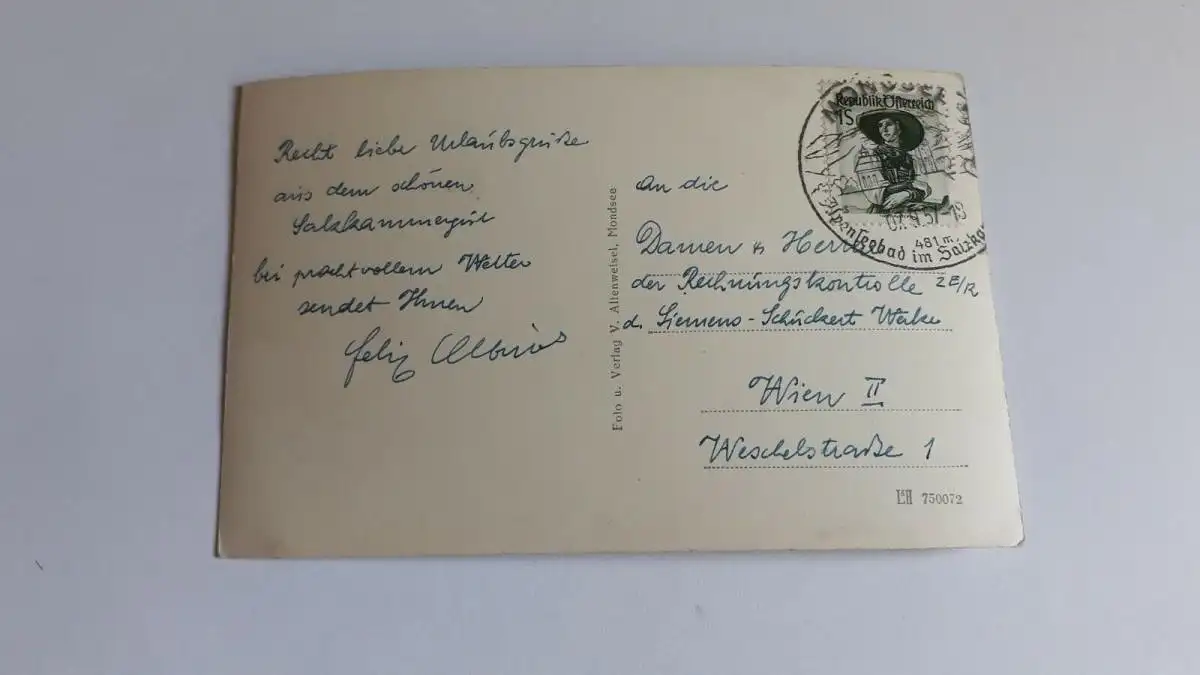 Recht liebe Urlaubsgrüße
aus dem schönen
Salzkammergut
bei prachtvollem Wetter
sendet Ihnen
Felix
Foto u. Verlag V. Altenweisel, Mondsee
MONDSEE
Republik Österreich
1S
57-18
481 m
Alpenseebad im Salzka
An die
Damen & Herren
der Rechnungskontrolle ZE/R
d. Siemens-Schuckert Werke
Wien II
Weschelstraße 1
750072